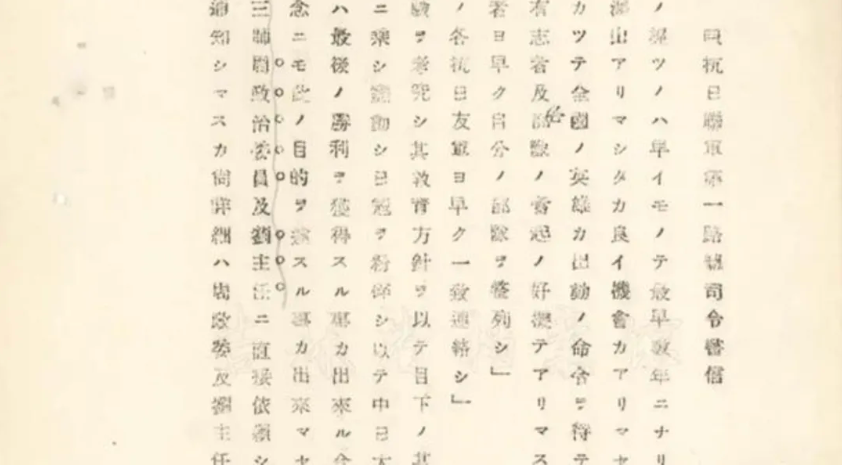 抗日聯軍第一路總司令書信
ノ經ツノハ早イモノテ最早数年ニナリ
出アリマシタカ良イ機會カアリマセ
カツテ全國ノ英雄カ出動ノ命令ヲ待テ
有志者及部隊ノ奮起ノ好機テアリマス
者ヨ早ク自分ノ部隊ヲ整列シ」
ノ各抗日友軍ヨ早ク一致連絡シ」
験ヲ考究シ其教育方針ヲ以テ目下ノ其
ニ樂シ出動シ日冦ヲ粉砕シ以テ中日大
ハ最後ノ勝利ヲ獲得スル事カ出來ル今
念ニモ此ノ目的ヲ達スル事カ出來マセ
三師周政治委員及劉主任ニ直接依頼シ
通知シマスカ尚詳細ハ周政委及劉主任